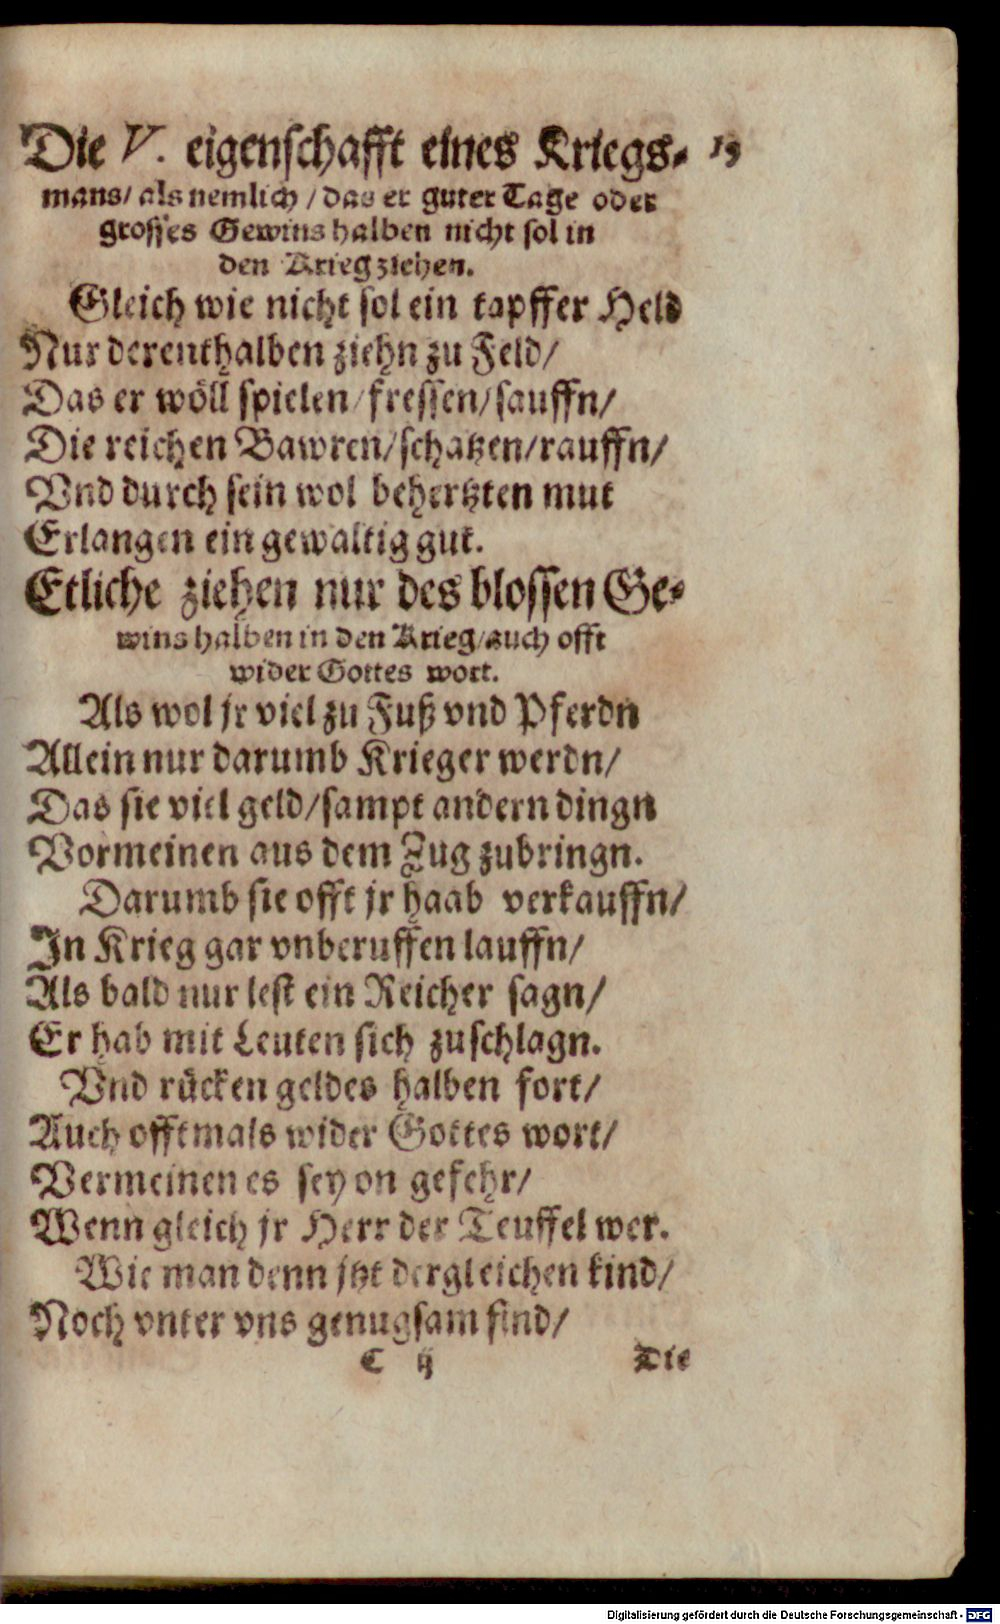 Die V. eigenschafft eines Kriegs- 19
mans/ als nemlich / das er guter Tage oder
grosses Gewins halben nicht sol in
den Krieg ziehen.
Gleich wie nicht sol ein tapffer Held
Nur derenthalben ziehn zu Feld/
Das er wöll spielen/fressen/sauffn/
Die reichen Bawren/schatzen/rauffn/
Vnd durch sein wol behertzten mut
Erlangen ein gewaltig gut.
Etliche ziehen nur des blossen Ge-
wins halben in den Krieg/auch offt
wider Gottes wort.
Als wol jr viel zu Fuß vnd Pferdn
Allein nur darumb Krieger werdn/
Das sie viel geld/sampt andern dingn
Vormeinen aus dem Zug zubringn.
Darumb sie offt jr haab verkauffn/
In Krieg gar vnberuffen lauffn/
Als bald nur lest ein Reicher sagn/
Er hab mit Leuten sich zuschlagn.
Vnd rücken geldes halben fort/
Auch offtmals wider Gottes wort/
Vermeinen es sey on gefehr/
Wenn gleich jr Herr der Teuffel wer.
Wie man denn jtzt dergleichen kind/
Noch vnter vns genugsam find/
C ij Die
Digitalisierung gefördert durch die Deutsche Forschungsgemeinschaft - DFG